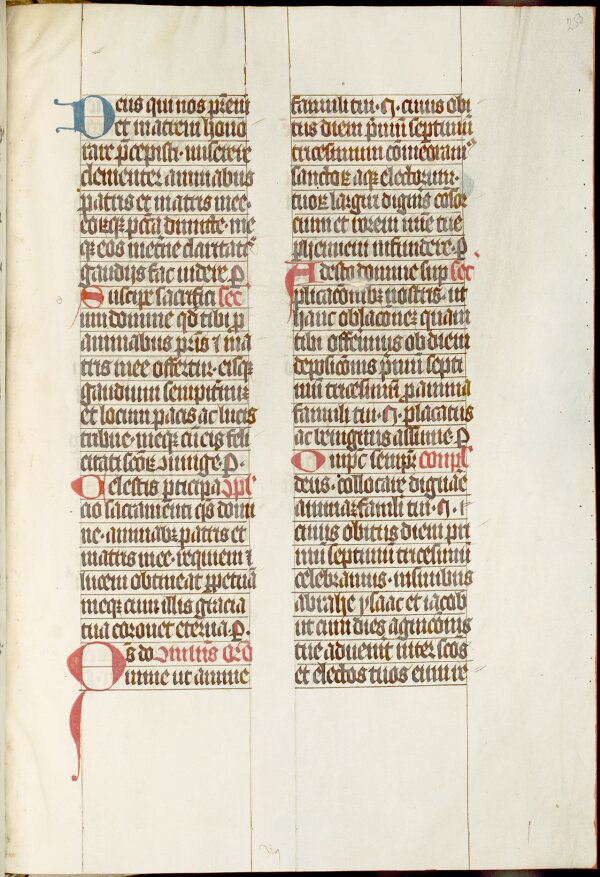 Deus qui nos p̄rem
et matrem hono
rare p̄cepisti· miserere
clementer animabus
patris et matris mee·
eorūqꝫ pctā dimitte· me
qꝫ eos in et̄ne claritatꝭ
gaudijs fac videre. P
Suscipe sacrificī sec̄
um domine qd tibi ꝓ
animabus pr̄is ⁊ ma
tris mee offertur· eisqꝫ
gaudium sempit̄nū
et locum pacis ac lucis
tribue· meqꝫ cū eis feli
citati sc̄oꝝ ꝯiunge· P·
Celestis pticipa ꝯpl̄
cio sacramenti q̄s domi
ne· animabꝫ patris et
matris mee· requiem ⁊
lucem obtineat ꝑpetuā
meqꝫ cum illis gracia
tua coronet eterna. P.
Oīs do
mine ut anime
famuli tui· N· cuius obi
tus diem p̄mū septimū
tricesimum cōmemoram⁹
sanctoꝝ atqꝫ electorum·
tuoꝝ largiri digneris consor
cium et rorem mīe tue
phennem infundere· P
Adesto domine sup sec̄
plicacōnibꝫ nostris· ut
hanc oblacōnē quam
tibi offerimus ob diem
deposicōnis p̄mū septi
mū tricesimū ꝓ anima
famuli tui· N· placatus
ac benignus assume. P
Omps semp̄ compl̄
deus· collocare dignare
animā famuli tui· N· ⁊
cuius obitus diem pri
mū septimū tricesimū
celebramus· in sinibus
abrahe ysaac et iacob
ut cum dies agnicōnis
tue advenit inter sc̄os
et electos tuos eum re